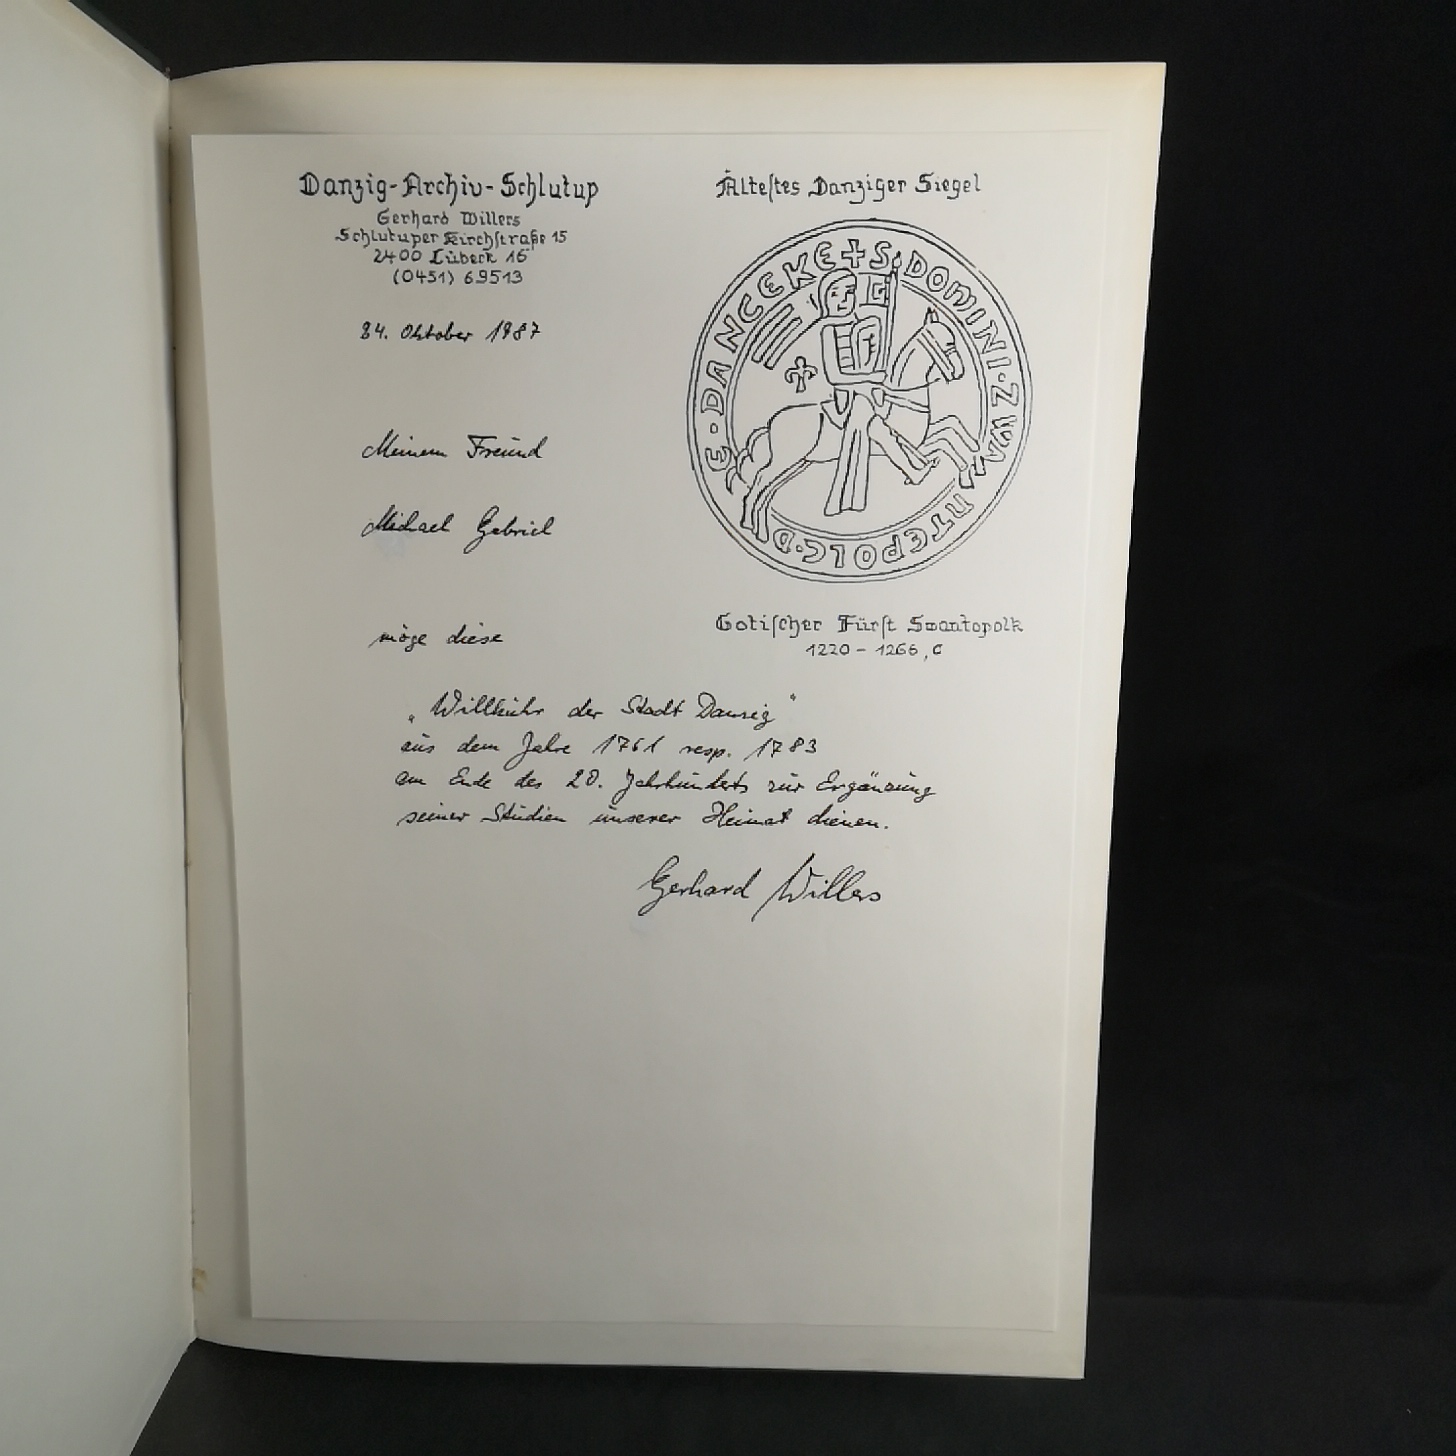 Danzig-Archiv-Schlutup
Gerhard Willers
Schlutuper Kirchſtraße 15
2400 Lübeck 16
(0451) 69513
Älteſtes Danziger Siegel
+ S. DOMINI · ZWANTEPOLC · D E · DANCEKE
Gotiſcher Fürſt Swantopolk
1220 - 1266, C
Oktober 1987
Meinem Freund
Michael Gabriel
möge diese
„Willkühr der Stadt Danzig"
aus dem Jahre 1761 resp. 1783
am Ende des 20. Jahrhunderts zur Ergänzung
seiner Studien unserer Heimat dienen.
Gerhard Willers